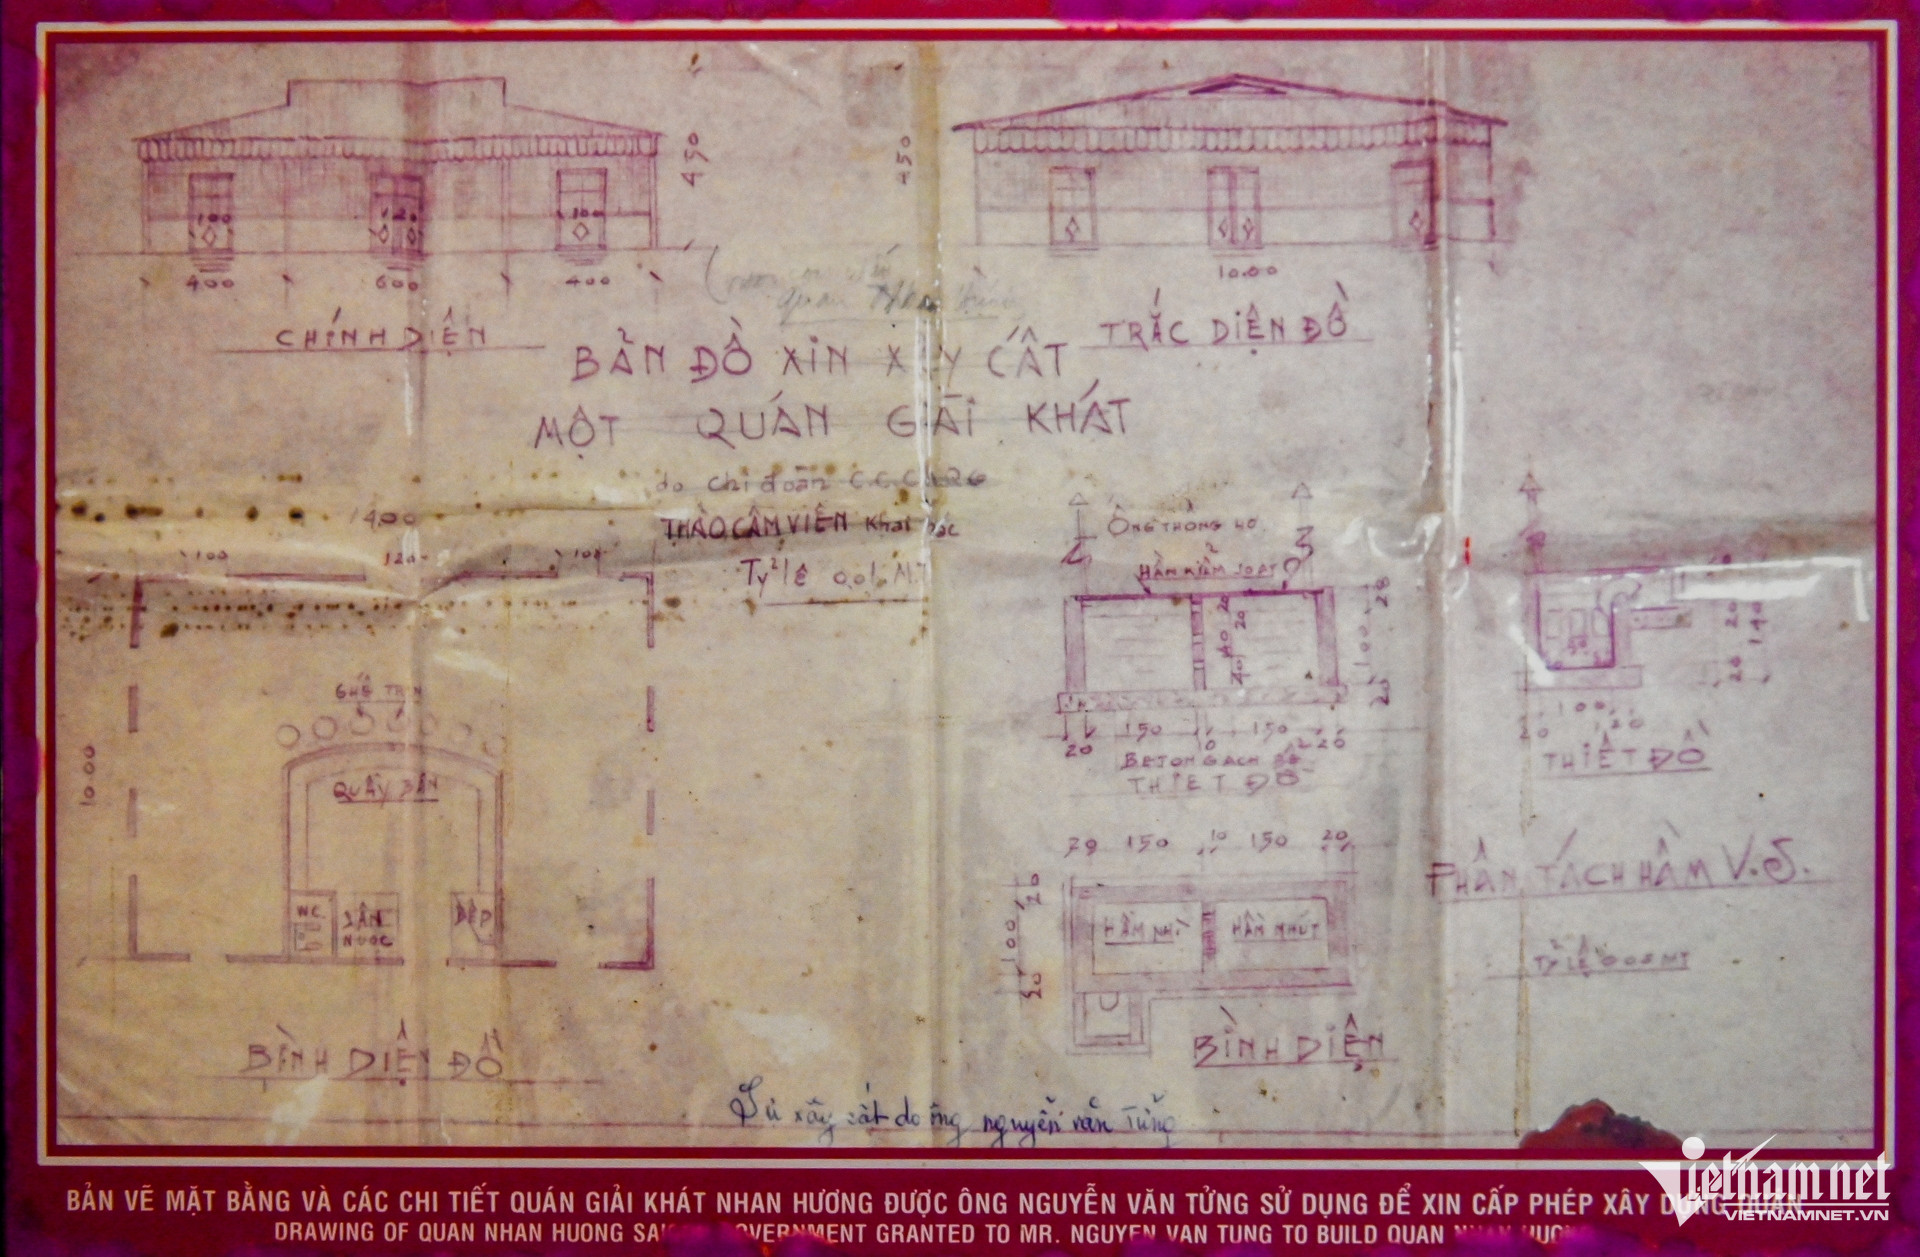 450
450
100
120
100
400
600
400
10.00
CHÍNH DIỆN
TRẮC DIỆN ĐỒ
quán
BẢN ĐỒ XIN XÂY CẤT
MỘT QUÁN GIẢI KHÁT
do chi đoàn
THẢO CẦM VIÊN khai thác
Tỷ lệ 0.01 M.T
1400
100
120
100
10.00
GHẾ TRÒN
QUẦY BÁN
WC
SÂN
NƯỚC
BẾP
BÌNH DIỆN ĐỒ
ỐNG THÔNG HƠI
HẦM KIỂM SOÁT
20
20
40
28
100
20
20
150
10
150
20
BETON GẠCH BỂ
THIẾT ĐỒ
20
140
20
100
20
20
THIẾT ĐỒ
20
150
10
150
20
20
100
20
HẦM NHÌ
HẦM NHÚT
BÌNH DIỆN
PHÂN TÁCH HẦM V.S.
TỶ LỆ 0.05 MT
Sự xây cất do ông nguyễn văn Tửng
BẢN VẼ MẶT BẰNG VÀ CÁC CHI TIẾT QUÁN GIẢI KHÁT NHAN HƯƠNG ĐƯỢC ÔNG NGUYỄN VĂN TỬNG SỬ DỤNG ĐỂ XIN CẤP PHÉP XÂY DỰNG QUÁN
DRAWING OF QUAN NHAN HUONG SAIGON GOVERNMENT GRANTED TO MR. NGUYEN VAN TUNG TO BUILD QUAN NHAN HUONG
Vietnamnet
VIETNAMNET.VN